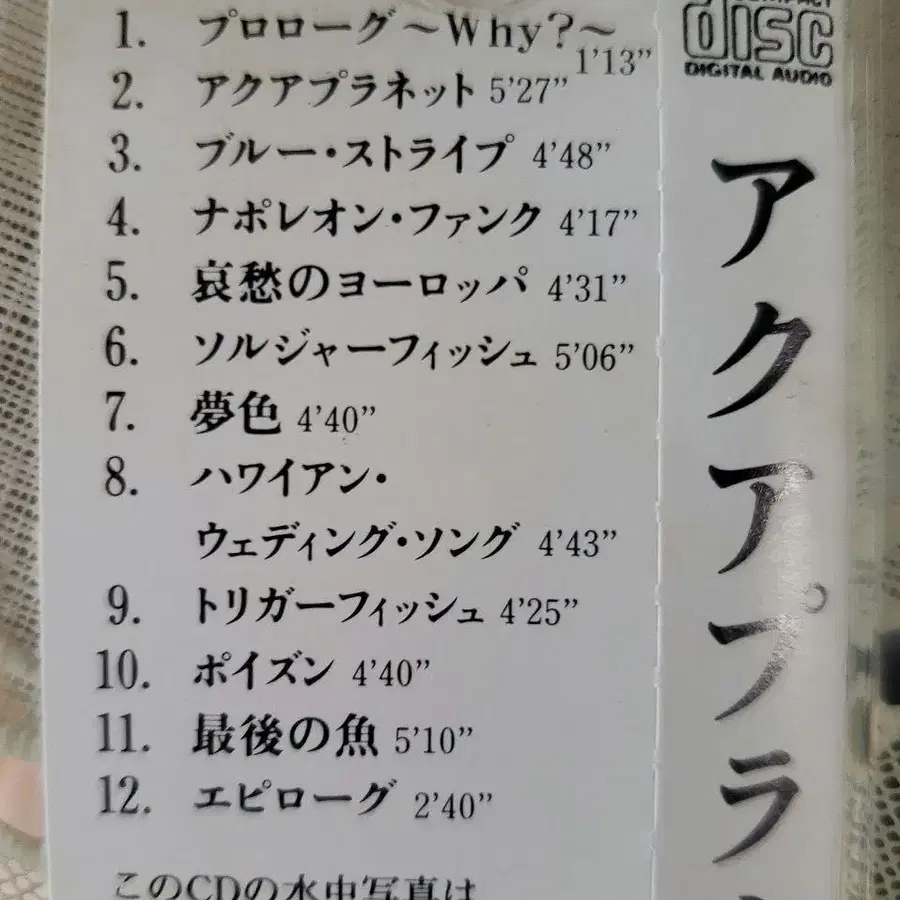 1. プロローグ～Why?～ 1'13”
2. アクアプラネット 5'27”
3. ブルー・ストライプ 4'48”
4. ナポレオン・ファンク 4'17”
5. 哀愁のヨーロッパ 4'31”
6. ソルジャーフィッシュ 5'06”
7. 夢色 4'40”
8. ハワイアン・
ウェディング・ソング 4'43”
9. トリガーフィッシュ 4'25”
10. ポイズン 4'40”
11. 最後の魚 5'10”
12. エピローグ 2'40”
このCDの水中写真は
disc
DIGITAL AUDIO
アクアプラ